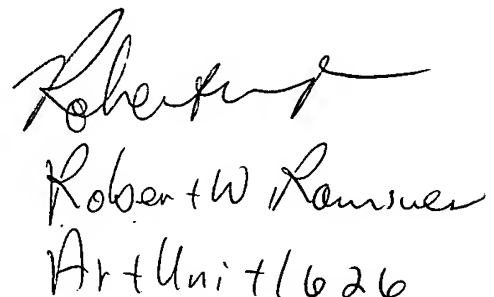 Robert
Robert W Ramsuer
Art Unit 1626